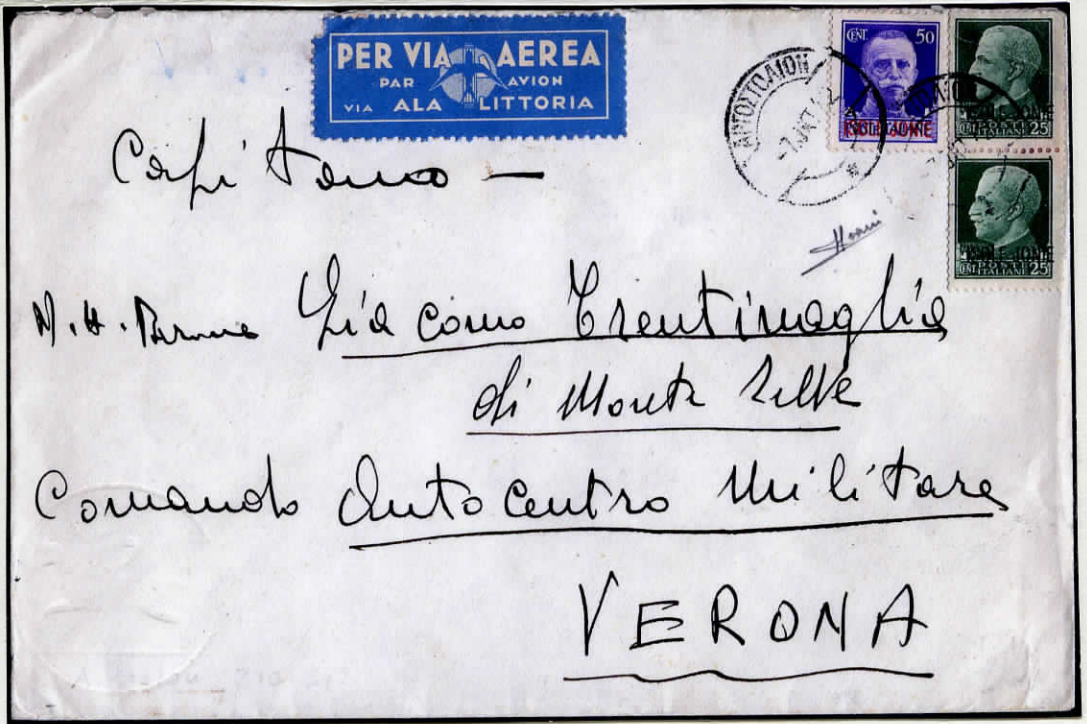 PER VIA AEREA
PAR AVION
VIA ALA LITTORIA
CENT. 50
ISOLE JONIE
ISOLE JONIE
CENT. 25
ISOLE JONIE
CENT. 25
ΑΡΓΟΣΤΟΛΙΟΝ
Capitano —
N. H. Giacomo Trentinaglia
di Monte
Comando Autocentro Militare
VERONA